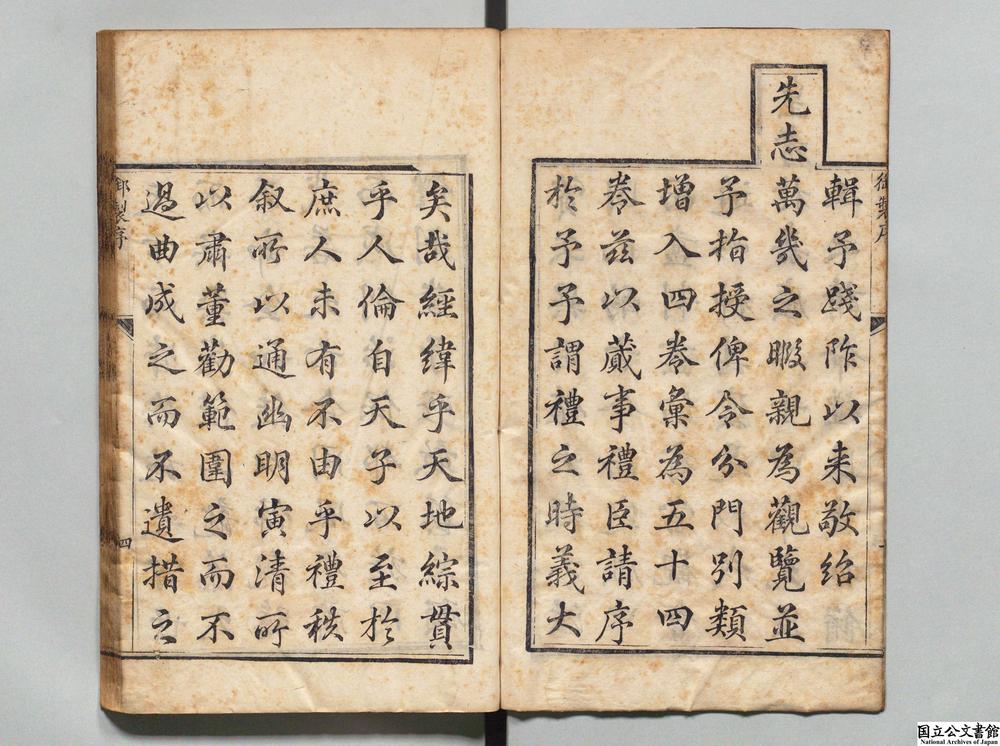 御製序
輯予踐阼以来敬紹
先志萬幾之暇親為觀覽並
予指授俾令分門別類
增入四卷彙為五十四
卷茲以蕆事禮臣請序
於予予謂禮之時義大
矣哉經緯乎天地綜貫
乎人倫自天子以至於
庶人未有不由乎禮秩
叙所以通幽明寅清所
以肅董勸範圍之而不
過曲成之而不遺措之
御製序
四
国立公文書館
National Archives of Japan